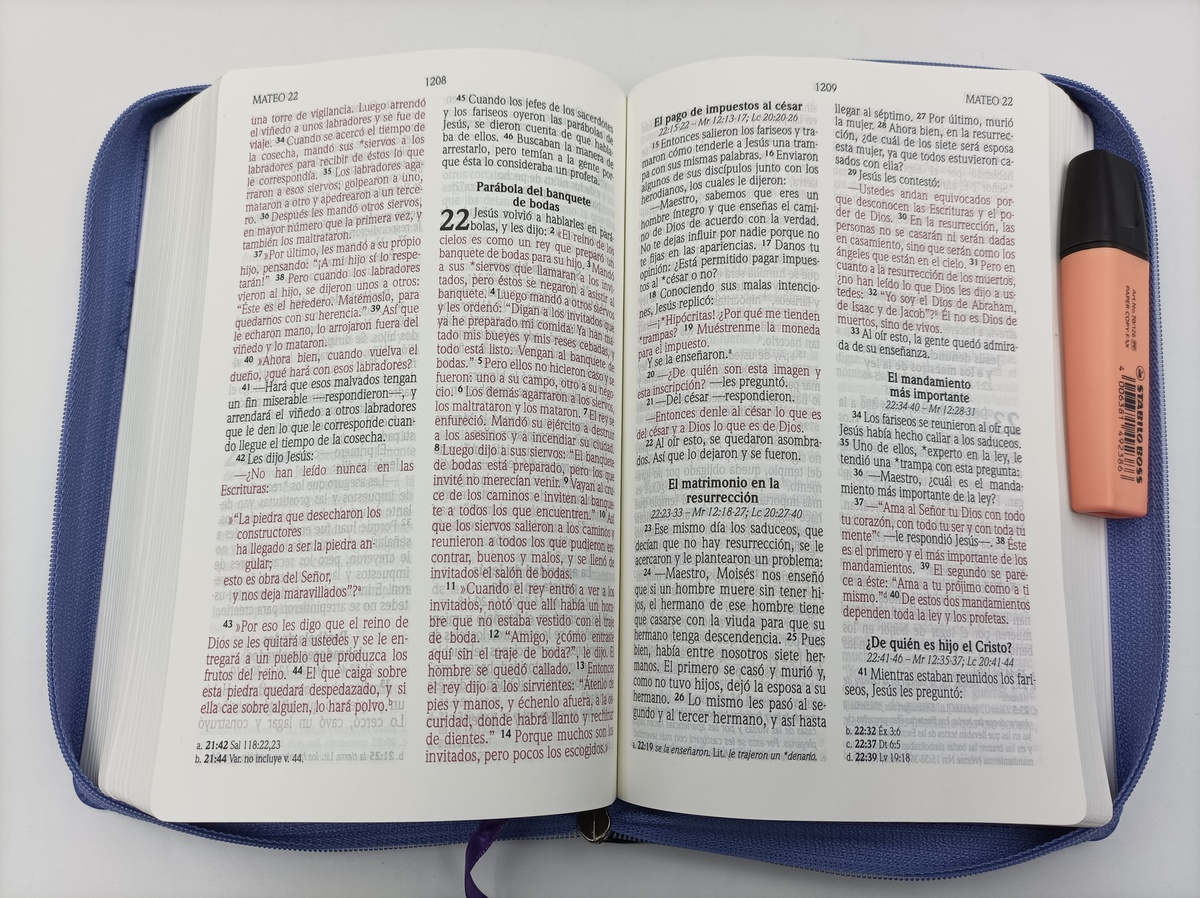 1208
MATEO 22
una torre de vigilancia. Luego arrendó
el viñedo a unos labradores y se fue de
viaje. 34 Cuando se acercó el tiempo de
la cosecha, mandó sus *siervos a los
labradores para recibir de éstos lo que
le correspondía. 35 Los labradores aga-
rraron a esos siervos; golpearon a uno,
mataron a otro y apedrearon a un terce-
ro. 36 Después les mandó otros siervos,
en mayor número que la primera vez, y
también los maltrataron.
37 »Por último, les mandó a su propio
hijo, pensando: “¡A mi hijo sí lo respe-
tarán!” 38 Pero cuando los labradores
vieron al hijo, se dijeron unos a otros:
“Éste es el heredero. Matémoslo, para
quedarnos con su herencia.” 39 Así que
le echaron mano, lo arrojaron fuera del
viñedo y lo mataron.
40 »Ahora bien, cuando vuelva el
dueño, ¿qué hará con esos labradores?
41 —Hará que esos malvados tengan
un fin miserable —respondieron—, y
arrendará el viñedo a otros labradores
que le den lo que le corresponde cuan-
do llegue el tiempo de la cosecha.
42 Les dijo Jesús:
—¿No han leído nunca en las
Escrituras:
»“La piedra que desecharon los
constructores
ha llegado a ser la piedra an-
gular;
esto es obra del Señor,
y nos deja maravillados”?a
43 »Por eso les digo que el reino de
Dios se les quitará a ustedes y se le en-
tregará a un pueblo que produzca los
frutos del reino. 44 El que caiga sobre
esta piedra quedará despedazado, y si
ella cae sobre alguien, lo hará polvo.b
a. 21:42 Sal 118:22,23
b. 21:44 Var. no incluye v. 44.
45 Cuando los jefes de los sacerdotes
y los fariseos oyeron las parábolas de
Jesús, se dieron cuenta de que habla-
ba de ellos. 46 Buscaban la manera de
arrestarlo, pero temían a la gente por-
que ésta lo consideraba un profeta.
Parábola del banquete
de bodas
22 Jesús volvió a hablarles en pará-
bolas, y les dijo: 2 «El reino de los
cielos es como un rey que preparó un
banquete de bodas para su hijo. 3 Mandó
a sus *siervos que llamaran a los invi-
tados, pero éstos se negaron a asistir al
banquete. 4 Luego mandó a otros siervos
y les ordenó: “Digan a los invitados que
ya he preparado mi comida: Ya han ma-
tado mis bueyes y mis reses cebadas, y
todo está listo. Vengan al banquete de
bodas.” 5 Pero ellos no hicieron caso y se
fueron: uno a su campo, otro a su nego-
cio. 6 Los demás agarraron a los siervos,
los maltrataron y los mataron. 7 El rey se
enfureció. Mandó su ejército a destruir
a los asesinos y a incendiar su ciudad.
8 Luego dijo a sus siervos: “El banquete
de bodas está preparado, pero los que
invité no merecían venir. 9 Vayan al cru-
ce de los caminos e inviten al banque-
te a todos los que encuentren.” 10 Así
que los siervos salieron a los caminos y
reunieron a todos los que pudieron en-
contrar, buenos y malos, y se llenó de
invitados el salón de bodas.
11 »Cuando el rey entró a ver a los
invitados, notó que allí había un hom-
bre que no estaba vestido con el traje
de boda. 12 “Amigo, ¿cómo entraste
aquí sin el traje de boda?”, le dijo. El
hombre se quedó callado. 13 Entonces
el rey dijo a los sirvientes: “Átenlo de
pies y manos, y échenlo afuera, a la os-
curidad, donde habrá llanto y rechinar
de dientes.” 14 Porque muchos son los
invitados, pero pocos los escogidos.»
1209
MATEO 22
El pago de impuestos al césar
22:15-22 – Mr 12:13-17; Lc 20:20-26
15 Entonces salieron los fariseos y tra-
maron cómo tenderle a Jesús una tram-
pa con sus mismas palabras. 16 Enviaron
algunos de sus discípulos junto con los
herodianos, los cuales le dijeron:
—Maestro, sabemos que eres un
hombre íntegro y que enseñas el cami-
no de Dios de acuerdo con la verdad.
No te dejas influir por nadie porque no
te fijas en las apariencias. 17 Danos tu
opinión: ¿Está permitido pagar impues-
tos al *césar o no?
18 Conociendo sus malas intencio-
nes, Jesús replicó:
—¡*Hipócritas! ¿Por qué me tienden
*trampas? 19 Muéstrenme la moneda
para el impuesto.
Y se la enseñaron.a
20 —¿De quién son esta imagen y
esta inscripción? —les preguntó.
21 —Del césar —respondieron.
—Entonces denle al césar lo que es
del césar y a Dios lo que es de Dios.
22 Al oír esto, se quedaron asombra-
dos. Así que lo dejaron y se fueron.
El matrimonio en la
resurrección
22:23-33 – Mr 12:18-27; Lc 20:27-40
23 Ese mismo día los saduceos, que
decían que no hay resurrección, se le
acercaron y le plantearon un problema:
24 —Maestro, Moisés nos enseñó
que si un hombre muere sin tener hi-
jos, el hermano de ese hombre tiene
que casarse con la viuda para que su
hermano tenga descendencia. 25 Pues
bien, había entre nosotros siete her-
manos. El primero se casó y murió y,
como no tuvo hijos, dejó la esposa a su
hermano. 26 Lo mismo les pasó al se-
gundo y al tercer hermano, y así hasta
a. 22:19 se la enseñaron. Lit. le trajeron un *denario.
llegar al séptimo. 27 Por último, murió
la mujer. 28 Ahora bien, en la resurrec-
ción, ¿de cuál de los siete será esposa
esta mujer, ya que todos estuvieron ca-
sados con ella?
29 Jesús les contestó:
—Ustedes andan equivocados por-
que desconocen las Escrituras y el po-
der de Dios. 30 En la resurrección, las
personas no se casarán ni serán dadas
en casamiento, sino que serán como los
ángeles que están en el cielo. 31 Pero en
cuanto a la resurrección de los muertos,
¿no han leído lo que Dios les dijo a us-
tedes: 32 “Yo soy el Dios de Abraham,
de Isaac y de Jacob”?b Él no es Dios de
muertos, sino de vivos.
33 Al oír esto, la gente quedó admira-
da de su enseñanza.
El mandamiento
más importante
22:34-40 – Mr 12:28-31
34 Los fariseos se reunieron al oír que
Jesús había hecho callar a los saduceos.
35 Uno de ellos, *experto en la ley, le
tendió una *trampa con esta pregunta:
36 —Maestro, ¿cuál es el manda-
miento más importante de la ley?
37 —“Ama al Señor tu Dios con todo
tu corazón, con todo tu ser y con toda tu
mente”c —le respondió Jesús—. 38 Éste
es el primero y el más importante de los
mandamientos. 39 El segundo se pare-
ce a éste: “Ama a tu prójimo como a ti
mismo.”d 40 De estos dos mandamientos
dependen toda la ley y los profetas.
¿De quién es hijo el Cristo?
22:41-46 – Mr 12:35-37; Lc 20:41-44
41 Mientras estaban reunidos los fari-
seos, Jesús les preguntó:
b. 22:32 Éx 3:6
c. 22:37 Dt 6:5
d. 22:39 Lv 19:18
STABILO BOSS
4 006381 492386